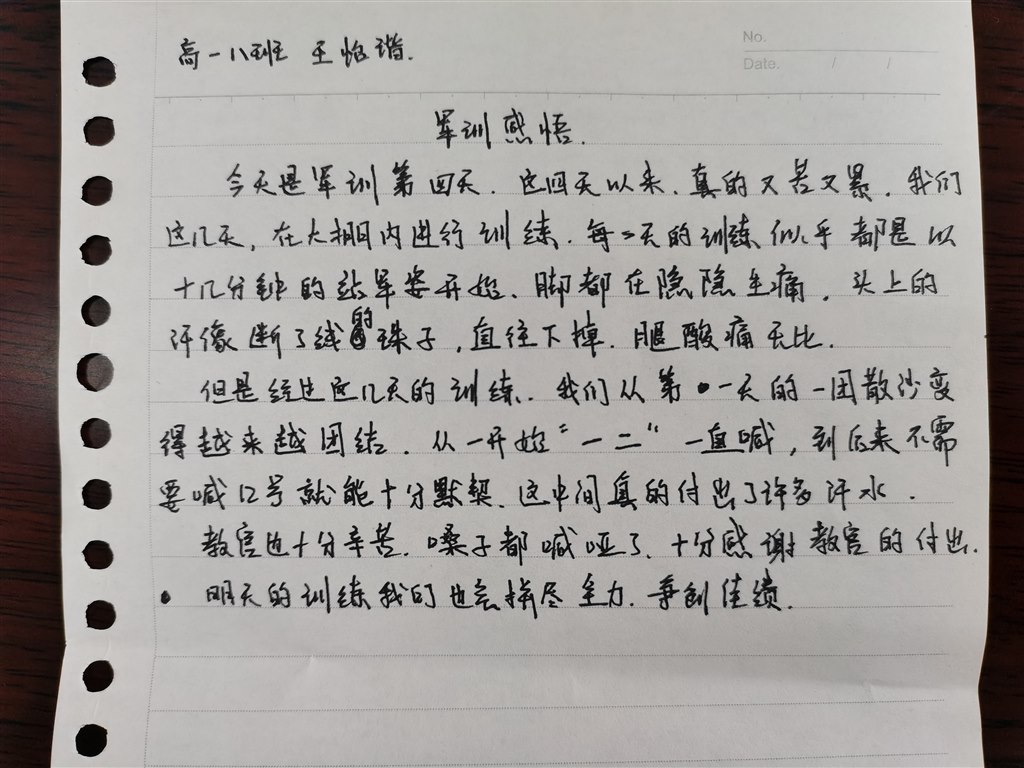 高一八班 王怡谐.
No.
Date. / /
军训感悟.
今天是军训第四天.这四天以来.真的又苦又累.我们
这几天,在大棚内进行训练.每一天的训练似乎都是以
十几分钟的站军姿开始、脚都在隐隐生痛,头上的
汗像断了线的珠子,直往下掉.腿酸痛无比.
但是经过这几天的训练.我们从第一天的一团散沙变
得越来越团结.从一开始“一二”一直喊,到后来不需
要喊口号就能十分默契.这中间真的付出了许多汗水.
教官也十分辛苦.嗓子都喊哑了.十分感谢教官的付出.
明天的训练我们也会拼尽全力.争创佳绩.